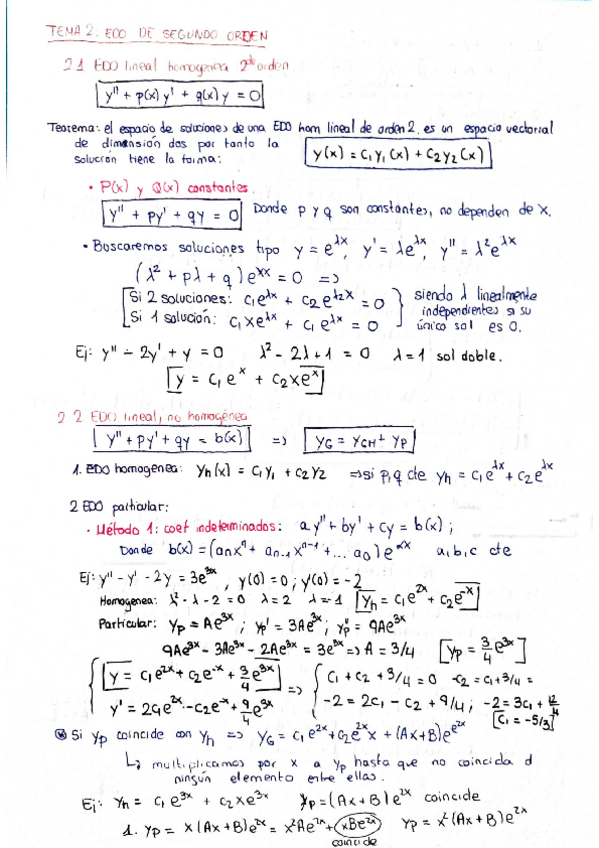 TEMA 2. EDO DE SEGUNDO ORDEN
2.1 EDO lineal homogenea 2do orden.
y'' + p(x) y' + q(x) y = 0
Teorema: el espacio de soluciones de una EDO hom lineal de orden 2, es un espacio vectorial
de dimensión dos por tanto la
solución tiene la forma: y(x) = c₁y₁(x) + c₂y₂(x)
• P(x) y Q(x) constantes.
y'' + py' + qy = 0 Donde p y q son constantes, no dependen de x.
• Buscaremos soluciones tipo y = e^λx, y' = λe^λx, y'' = λ²e^λx
(λ² + pλ + q) e^λx = 0 =>
Si 2 soluciones: c₁e^λx + c₂e^λ₂x = 0 siendo λ linealmente
Si 1 solución: c₁xe^λx + c₁e^λx = 0 independientes si su
único sol es 0.
Ej: y'' - 2y' + y = 0 λ² - 2λ + 1 = 0 λ = 1 sol doble.
y = c₁e^x + c₂xe^x
2.2 EDO lineal, no homogénea
y'' + py' + qy = b(x) => yG = yGH + yP
1. EDO homogenea: yh(x) = c₁y₁ + c₂y₂ => si p,q cte yh = c₁e^λx + c₂e^λx
2 EDO particular:
• Método 1: coef indeterminados: ay'' + by' + cy = b(x);
Donde b(x) = (anx^n + an-1x^n-1 + ... a0) e^αx a,b,c cte
Ej: y'' - y' - 2y = 3e^3x, y(0) = 0; y'(0) = -2
Homogenea: λ² - λ - 2 = 0 λ = 2 λ = -1 yh = c₁e^2x + c₂e^-x
Particular: yp = Ae^3x; yp' = 3Ae^3x; yp'' = 9Ae^3x
9Ae^3x - 3Ae^3x - 2Ae^3x = 3e^3x => A = 3/4 [yp = 3/4 e^3x]
y = c₁e^2x + c₂e^-x + 3/4 e^3x => c₁ + c₂ + 3/4 = 0 -c₂ = c₁ + 3/4 =
y' = 2c₁e^2x - c₂e^-x + 9/4 e^3x -2 = 2c₁ - c₂ + 9/4; -2 = 3c₁ + 12/4
[c₁ = -5/3]
Si yp coincide con yh => yG = c₁e^2x + c₂e^2x x + (Ax+B)e^2x
↳ multiplicamos por x a yp hasta que no coincida d
ningún elemento entre ellas.
Ej: yh = c₁e^3x + c₂xe^3x yp = (Ax+B)e^2x coincide
1. yp = x(Ax+B)e^2x = x²Ae^2x + xBe^2x yp = x²(Ax+B)e^2x
coincide